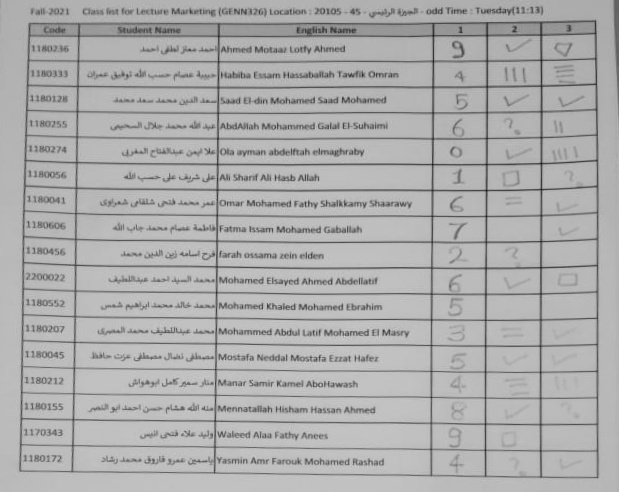 Fall-2021 Class list for Lecture Marketing (GENN326) Location : 20105 - 45 - الجيزة الرئيسي - odd Time : Tuesday(11:13)
Code Student Name English Name 1 2 3
1180236 احمد معتز لطفى احمد Ahmed Motaaz Lotfy Ahmed 9 ✓
1180333 حبيبة عصام حسب الله توفيق عمران Habiba Essam Hassaballah Tawfik Omran 4 |||
1180128 سعد الدين محمد سعد محمد Saad El-din Mohamed Saad Mohamed 5 ✓ ✓
1180255 عبد الله محمد جلال السحيمى AbdAllah Mohammed Galal El-Suhaimi 6 ? ||
1180274 علا ايمن عبدالفتاح المغربى Ola ayman abdelftah elmaghraby 0 ✓ ||||
1180056 على شريف على حسب الله Ali Sharif Ali Hasb Allah 1 □ ?
1180041 عمر محمد فتحى شلقامى شعراوى Omar Mohamed Fathy Shalkkamy Shaarawy 6 = ✓
1180606 فاطمة عصام محمد جاب الله Fatma Issam Mohamed Gaballah 7 ✓
1180456 فرح اسامه زين الدين محمد farah ossama zein elden 2 ?
2200022 محمد السيد احمد عبداللطيف Mohamed Elsayed Ahmed Abdellatif 6 ✓ □
1180552 محمد خالد محمد ابراهيم شمس Mohamed Khaled Mohamed Ebrahim 5
1180207 محمد عبداللطيف محمد المصرى Mohammed Abdul Latif Mohamed El Masry 3 = ✓
1180045 مصطفى نضال مصطفى عزت حافظ Mostafa Neddal Mostafa Ezzat Hafez 5 ✓ ✓
1180212 منار سمير كامل ابوهواش Manar Samir Kamel AboHawash 4 ≡ |||
1180155 منه الله هشام حسن احمد ابو النصر Mennatallah Hisham Hassan Ahmed 8 ✓ ?
1170343 وليد علاء فتحى انيس Waleed Alaa Fathy Anees 9 □
1180172 ياسمين عمرو فاروق محمد رشاد Yasmin Amr Farouk Mohamed Rashad 4 ? ✓